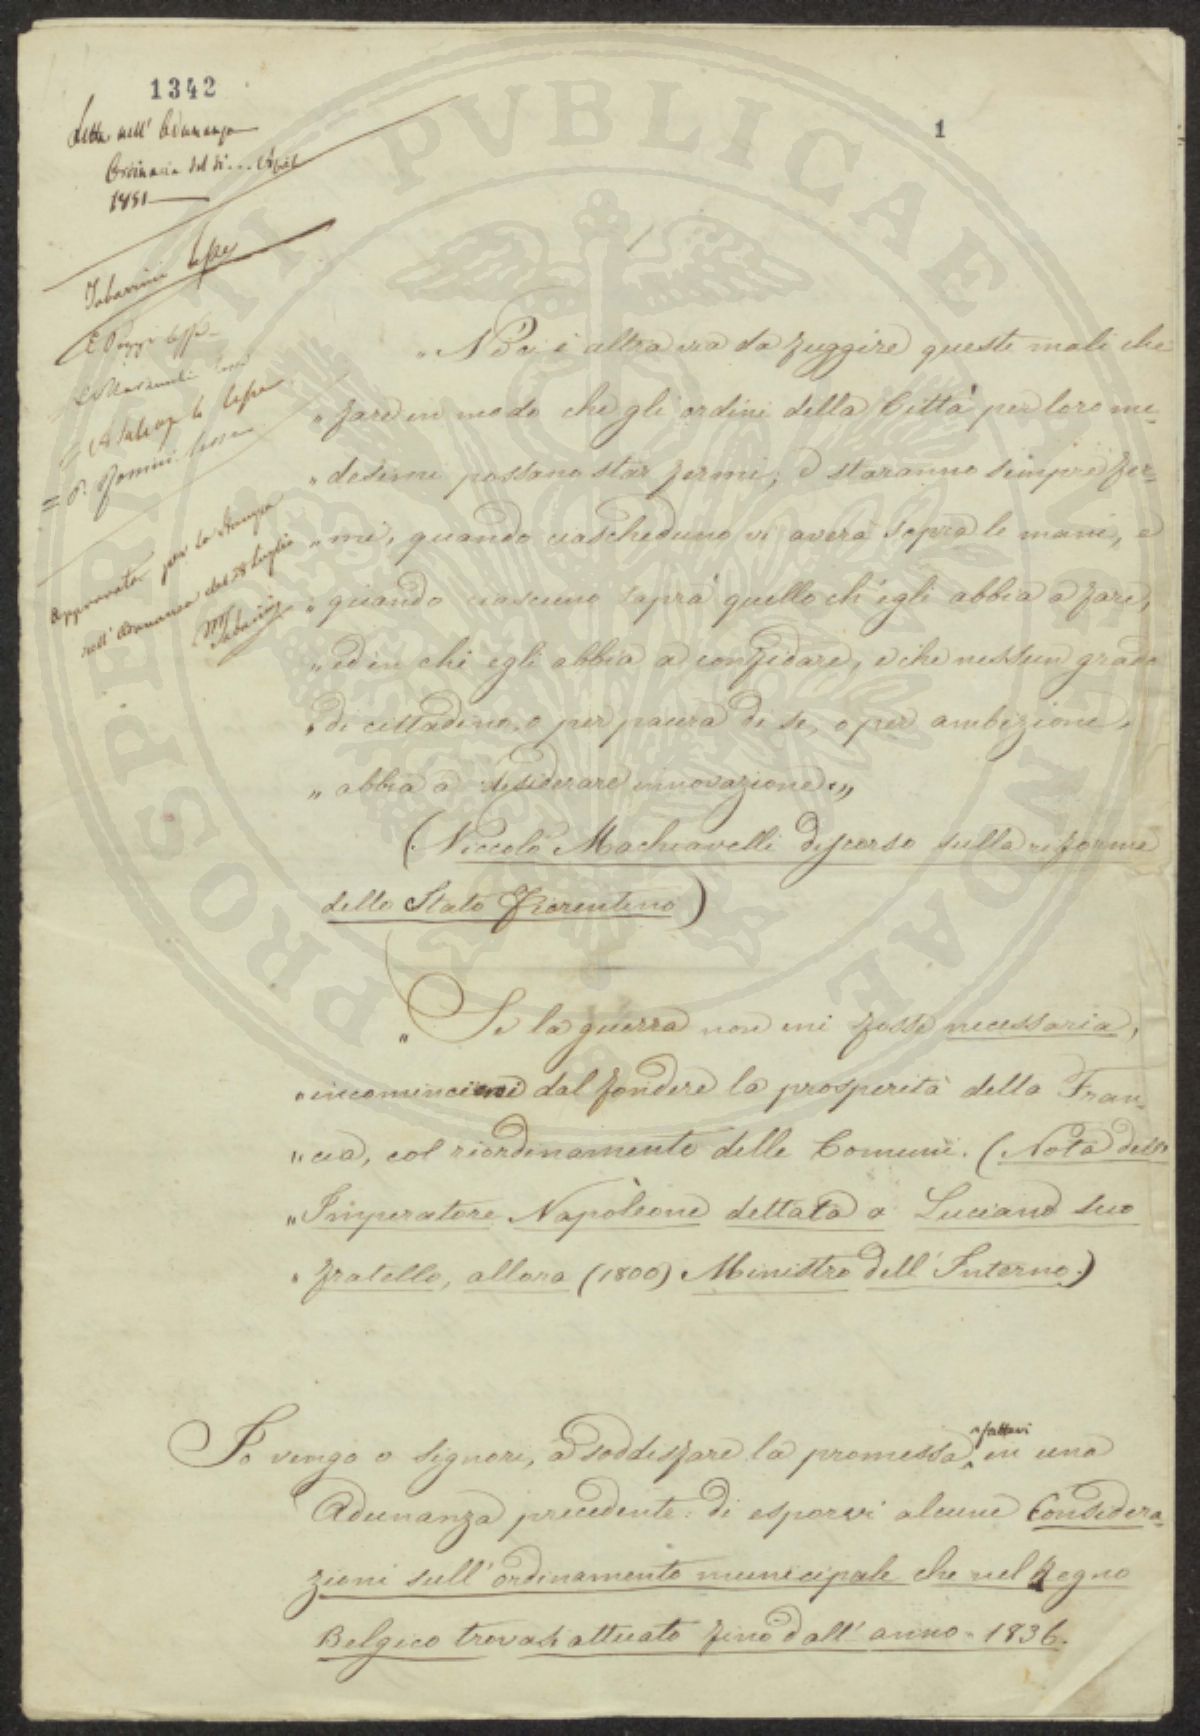 1342
1
Letta nell' Adunanza
Ordinaria del dì ... Aprile
1851
Tabarrini
Approvata per la Stampa
nell' Adunanza del 28 luglio
M Tabarrini
PROSPERITATI PVBLICAE AVGENDAE
" Non v'è altra via da fuggire questi mali che
" fare in modo che gli ordini della Città per loro me-
" desimi possano star fermi; e staranno sempre fer-
" mi, quando ciascheduno vi averà sopra le mani, e
" quando ciascuno saprà quello ch'egli abbia a fare,
" ed in chi egli abbia a confidare, e che nessun grado
" di cittadino, o per paura di se, o per ambizione,
" abbia a desiderare innovazione. "
(Niccolò Machiavelli discorso sulla riforma
dello Stato Fiorentino)
" Se la guerra non mi fosse necessaria,
" incomincierei dal fondere la prosperità della Fran-
" cia, col riordinamento delle Comuni. (Nota dello
" Imperatore Napoleone dettata a Luciano suo
" fratello, allora (1800) Ministro dell' Interno.)
Io vengo o signori, a soddisfare la promessa fattavi in una
Adunanza precedente: di esporvi alcune Considera-
zioni sull' ordinamento municipale che nel Regno
Belgico trovasi attuato fino dall' anno 1836.